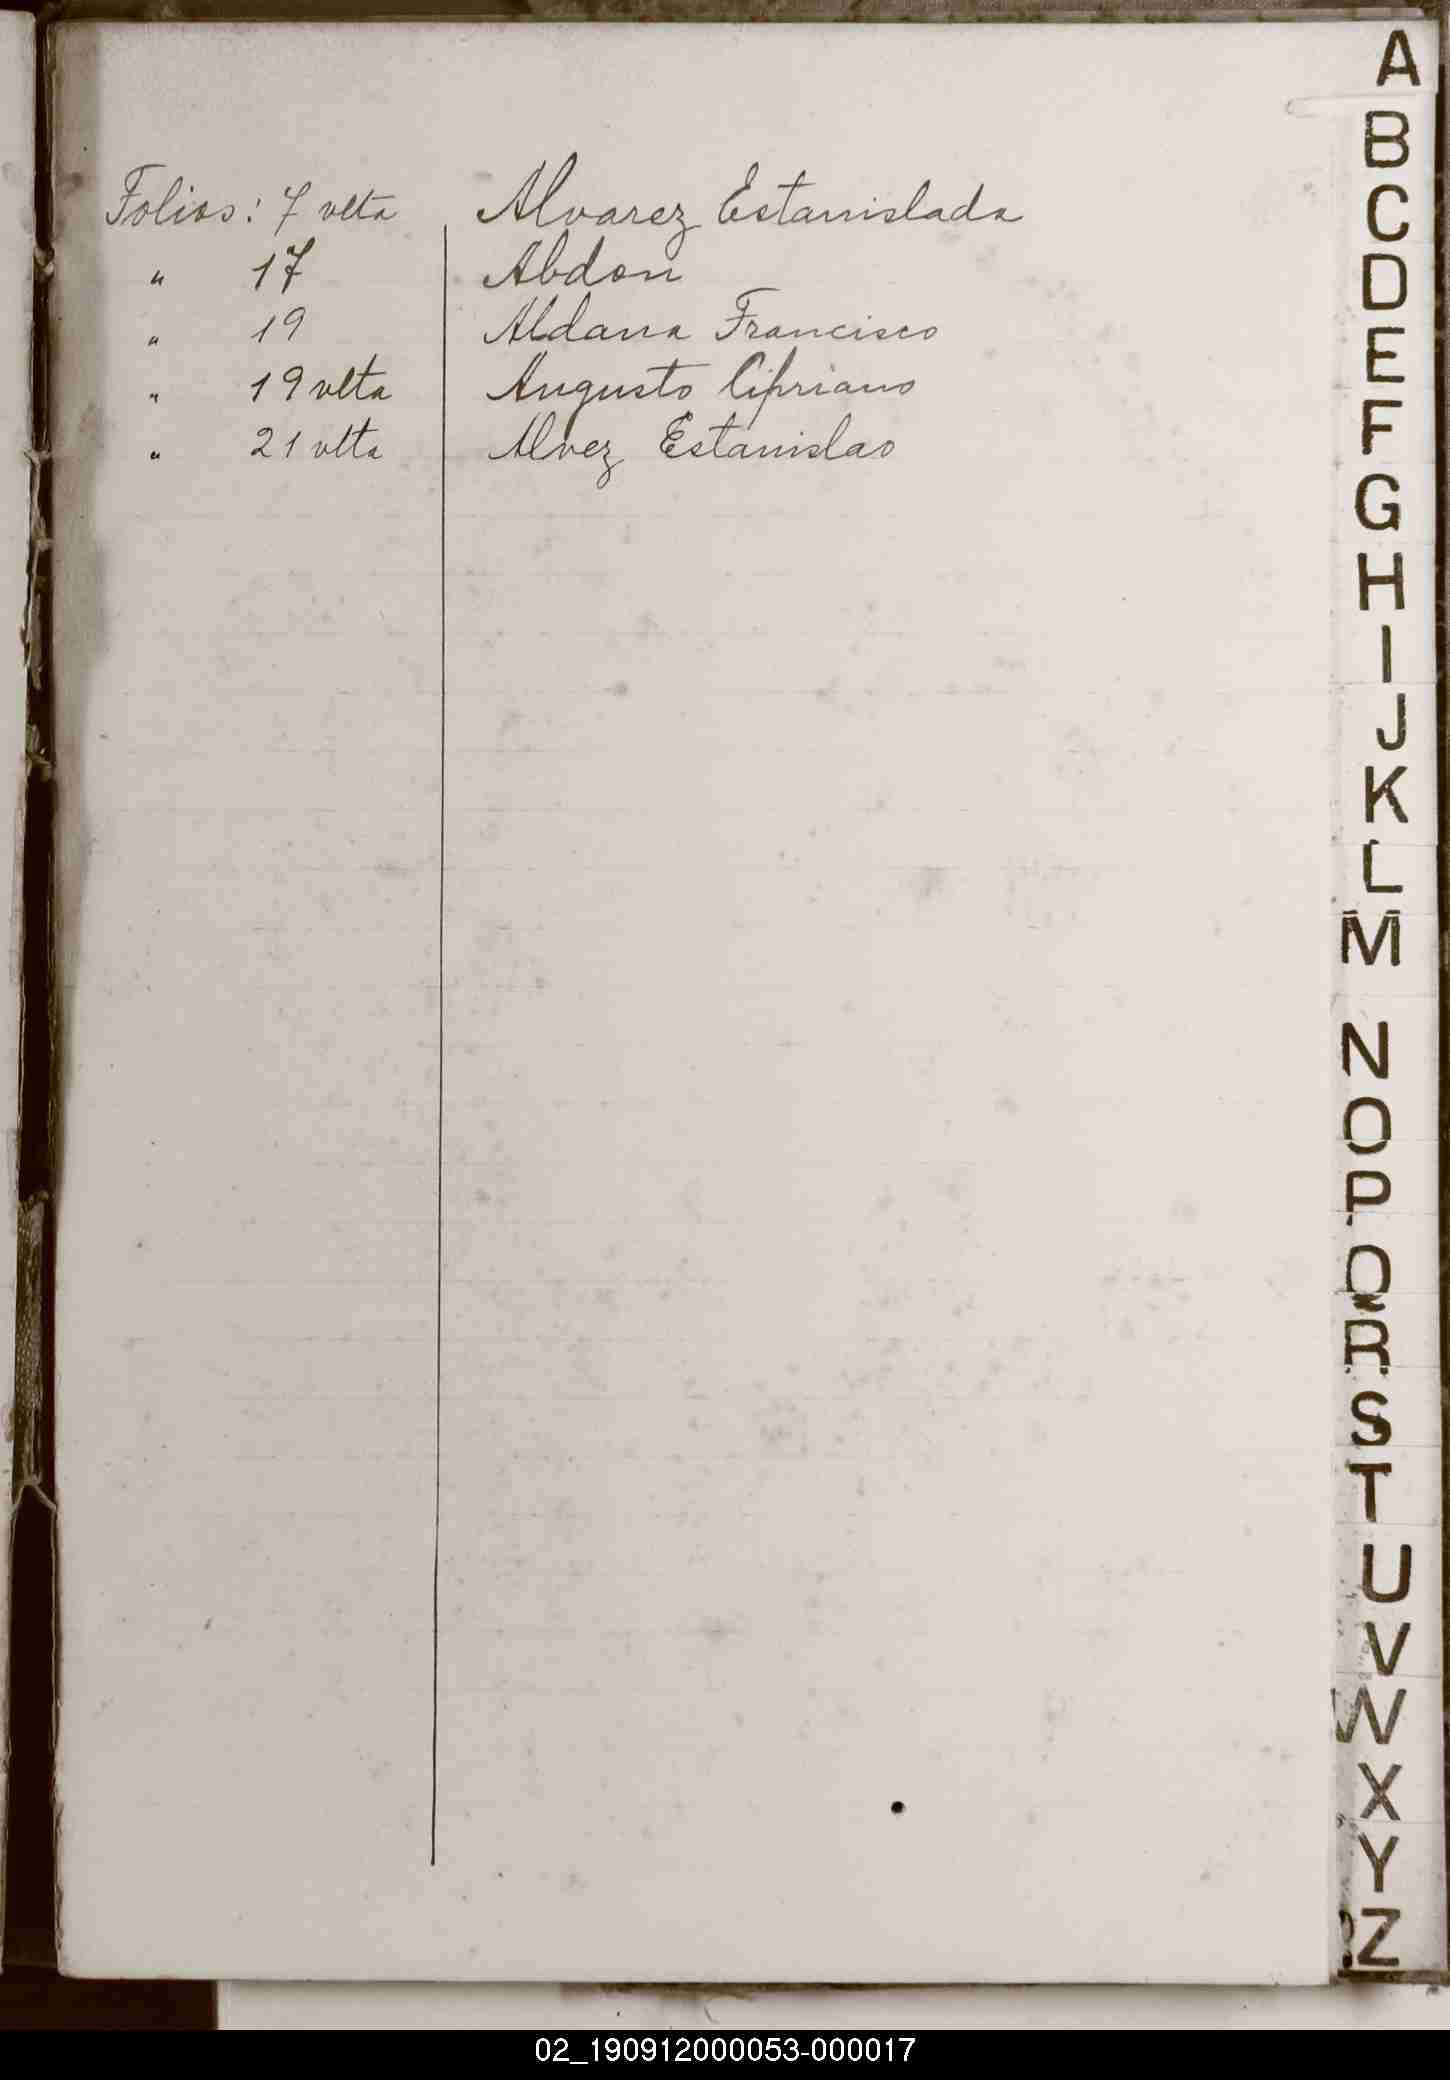 Folios: 7 vlta Alvarez Estanislada
" 17 Abdon
" 19 Aldana Francisco
" 19 vlta Augusto Cipriano
" 21 vlta Alvez Estanislao
A
B
C
D
E
F
G
H
I
J
K
L
M
N
O
P
Q
R
S
T
U
V
W
X
Y
Z
02_190912000053-000017